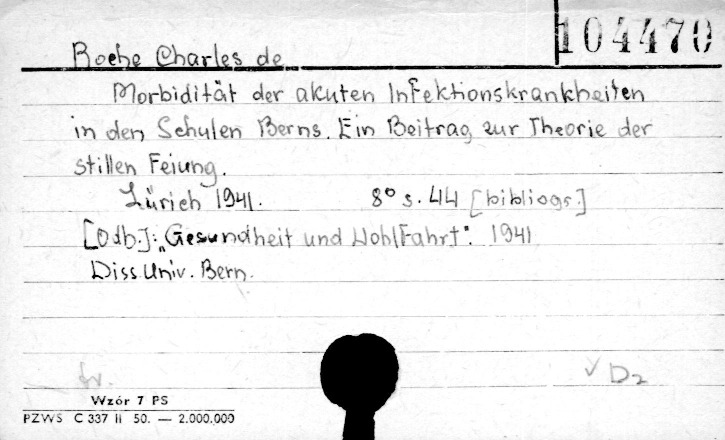 104470
Roche Charles de
Morbidität der akuten Infektionskrankheiten
in den Schulen Berns. Ein Beitrag zur Theorie der
stillen Feiung.
Zürich 1941. 8° s. 44 [bibliogr.]
[Odb.]: "Gesundheit und Wohlfahrt". 1941
Diss Univ. Bern.
√ D2
Wzór 7 PS
PZWS C 337 II 50. — 2.000.000